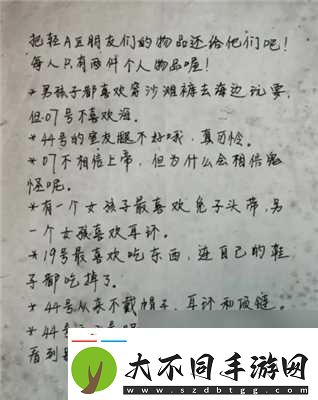 把轻A豆朋友们的物品还给他们吧！
每人只有两件个人物品喔！
*男孩子都喜欢穿沙滩裤去海边玩耍,
但07号不喜欢海.
*44号的室友腿不好哦，真可怜.
*07不相信上帝，但为什么会相信鬼
怪呢.
*有一个女孩子最喜欢兔子头带，另
一个女孩喜欢耳环.
*19号最喜欢吃东西，连自己的鞋
子都吃掉了.
*44号从来不戴帽子、耳环和项链.
*44号
看到
大不同手游网
www.szdbtgg.com